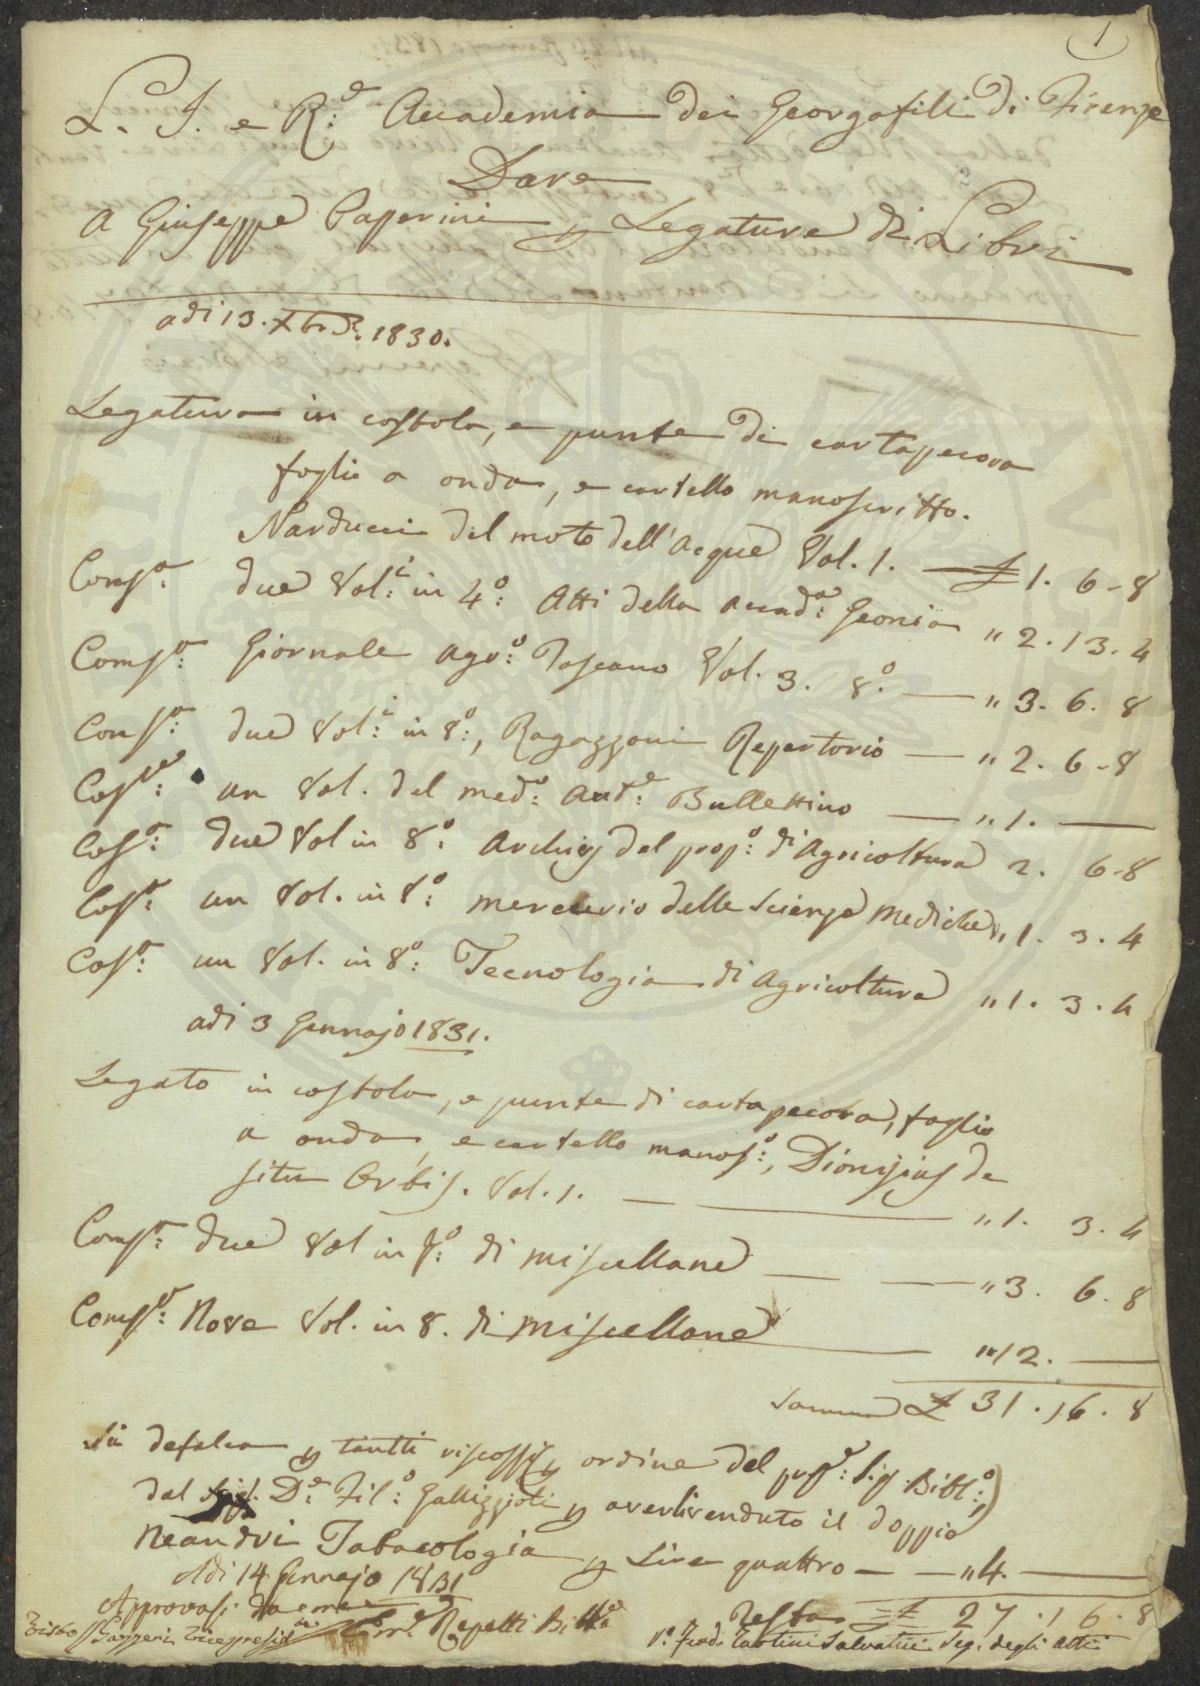 1
L. I. e R.e Accademia dei Georgofili di Firenze
Dare
A Giuseppe Paperini p Legature di Libri
adi 13. Xbre. 1830.
Legatura in costola, e punte di cartapecora
foglio a onda, e cartello manoscritto.
Narducci del moto dell'Acque Vol. 1. — £ 1. 6 - 8
Comp.a due Vol.i in 4.o Atti della Accad.a Gronia " 2. 13. 4
Comp.a Giornale Agr.o Toscano Vol. 3. 8.o — " 3. 6. 8
Comp.a due Vol.i in 8.o, Ragazzoni Repertorio — " 2. 6 - 8
Cop.a un Vol. del med.o Aut.e Bullettino — " 1. —
Cop.a due Vol in 8.o Archivj del prop.o di Agricoltura 2. 6-8
Cop.a un Vol. in 8.o mercurio delle Scienze Mediche " 1. 3. 4
Cop.a un Vol. in 8.o Tecnologia di Agricoltura " 1. 3. 4
adi 3 Gennajo 1831.
Legato in costola, e punte di cartapecora, foglio
a onda, e cartello manos.o, Dionisius de
situ Orbis. Vol. 1. — " 1. 3. 4
Comp.a due Vol in f.o di miscellane — " 3. 6. 8
Comp.a Nove Vol. in 8. di miscellane — " 12. —
Somma £ 31. 16. 8
Si defalca p tanti riscossi p ordine del prof.e Sig. Bibl.o,
dal D.e Fil.o Gallizzioli p avervi venduto il doppio
Neandri Tabacologia p Lire quattro — " 4. —
Adi 14 Gennajo 1831
Resta £ 27. 16. 8
Approvasi da me Repetti Bibl.o
Visto Gazzeri Vicepresid.te
V.o Ferd. Tartini Salvatici Seg. degli Atti